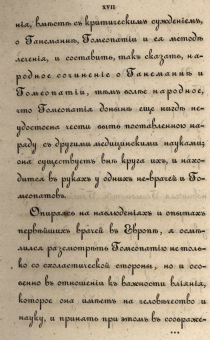 XVII
нія, вмѣстѣ съ критическимъ сужденіемъ,
о Ганеманнѣ, Гомеопатіи и ея методѣ
леченія, и составить, такъ сказать, на-
родное сочиненіе о Ганеманнѣ и
Гомеопатіи, тѣмъ болѣе народное,
что Гомеопатія донынѣ еще нигдѣ не-
удостоена чести быть поставленною на-
ряду съ другими медицинскими науками;
она существуетъ внѣ круга ихъ, и нахо-
дится въ рукахъ у однихъ не-врачей и Го-
меопатовъ.
Опираясь на наблюденіяхъ и опытахъ
первѣйшихъ врачей въ Европѣ, я осмѣ-
лился разсмотрѣть Гомеопатію не толь-
ко со схоластической стороны, но и осо-
бенно въ отношеніи къ важности вліянія,
которое она имѣетъ на человѣчество и
науку, и принять при этомъ въ соображе-